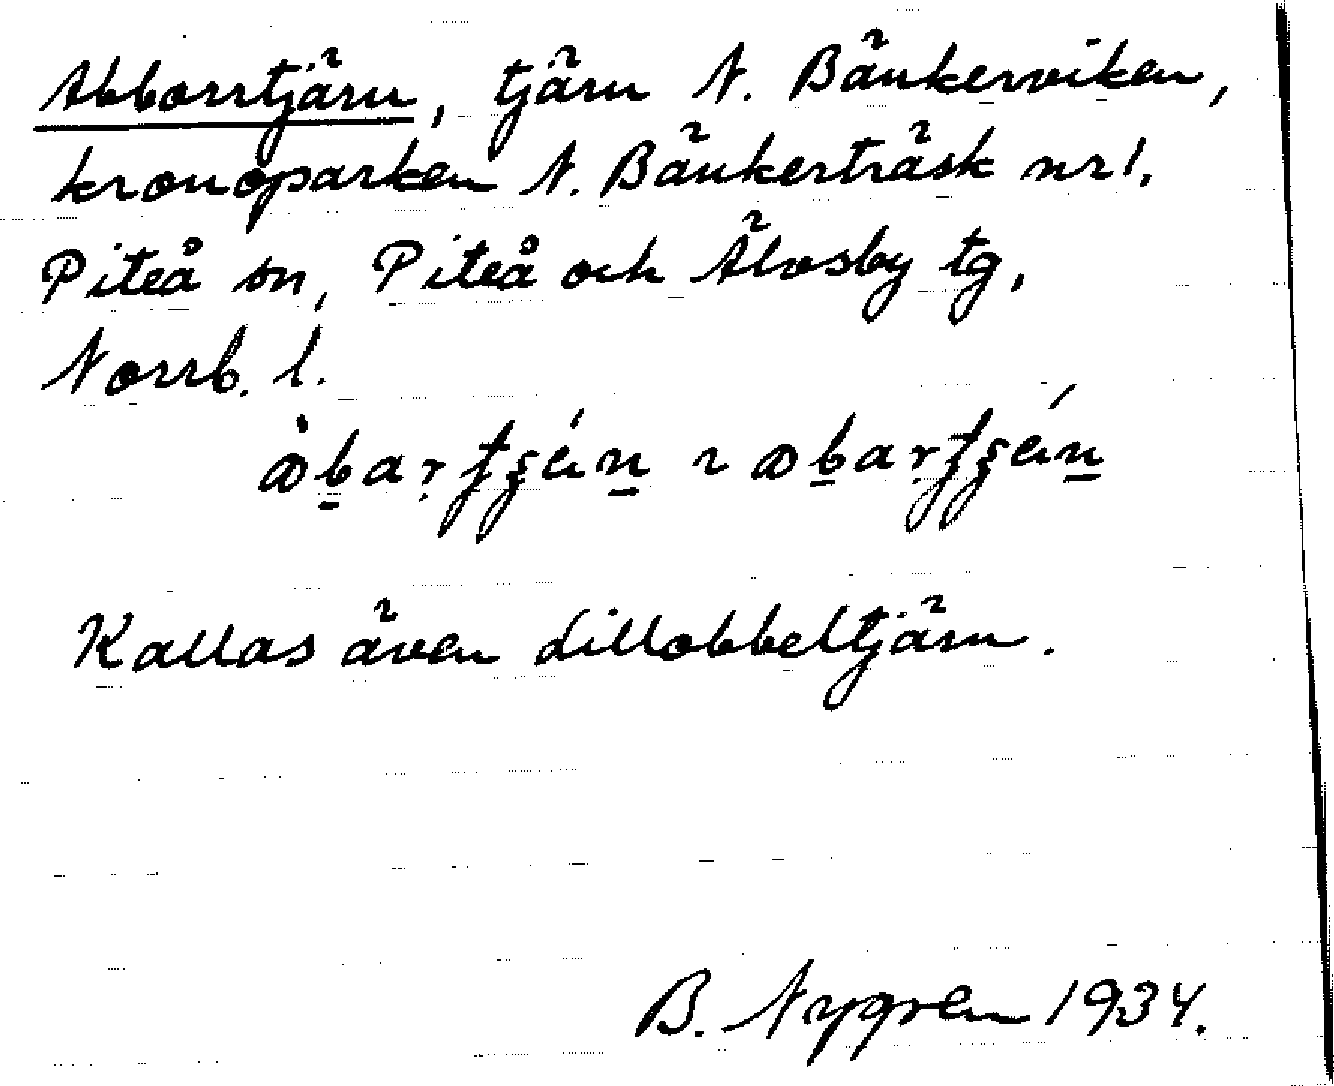 Abborrtjärn, tjärn N. Bänkerviken,
kronoparken N. Bänkerträsk nr 1.
Piteå sn, Piteå och Älvsby tg,
Norrb. l.
Kallas även Lillabbeltjärn.
B. Nygren 1934.